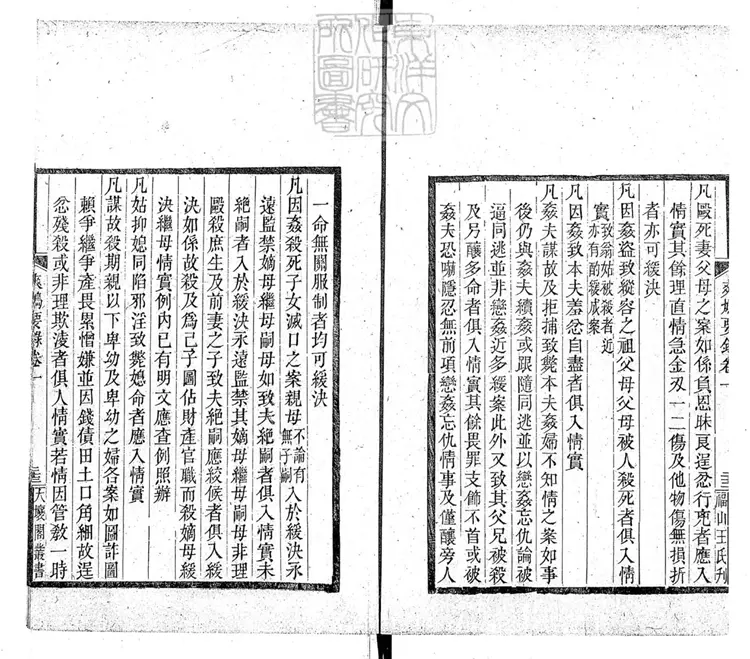 凡毆死妻父母之案如係負恩昧良逞忿行兇者應入
情實其餘理直情急金刃一二傷及他物傷無損折
者亦可緩決
凡因姦盜致縱容之祖父母父母被人殺死者俱入情
實致翁姑被殺者近亦有酌緩成案
凡因姦致本夫羞忿自盡者俱入情實
凡姦夫謀故及拒捕致斃本夫姦婦不知情之案如事
後仍與姦夫續姦或跟隨同逃並以戀姦忘仇論被
逼同逃並非戀姦近多緩案此外又致其父兄被殺
及另釀多命者俱入情實其餘畏罪支飾不首或被
姦夫恐嚇隱忍無前項戀姦忘仇情事及僅釀旁人
爽鳩要錄卷一
二十三
福山王氏刊
一命無關服制者均可緩決
凡因姦殺死子女滅口之案親母不論有無子嗣入於緩決永
遠監禁嫡母繼母嗣母如致夫絕嗣者俱入情實未
絕嗣者入於緩決永遠監禁其嫡母繼母嗣母非理
毆殺庶生及前妻之子致夫絕嗣應絞候者俱入緩
決如係故殺及爲己子圖佔財產官職而殺嫡母緩
決繼母情實例內已有明文應查例照辦
凡姑抑媳同陷邪淫致斃媳命者應入情實
凡謀故殺期親以下卑幼及卑幼之婦各案如圖詐圖
賴爭繼爭產畏累憎嫌並因錢債田土口角細故逞
忿殘殺或非理欺淩者俱入情實若情因管教一時
爽鳩要錄卷一
二十三
天壤閣叢書